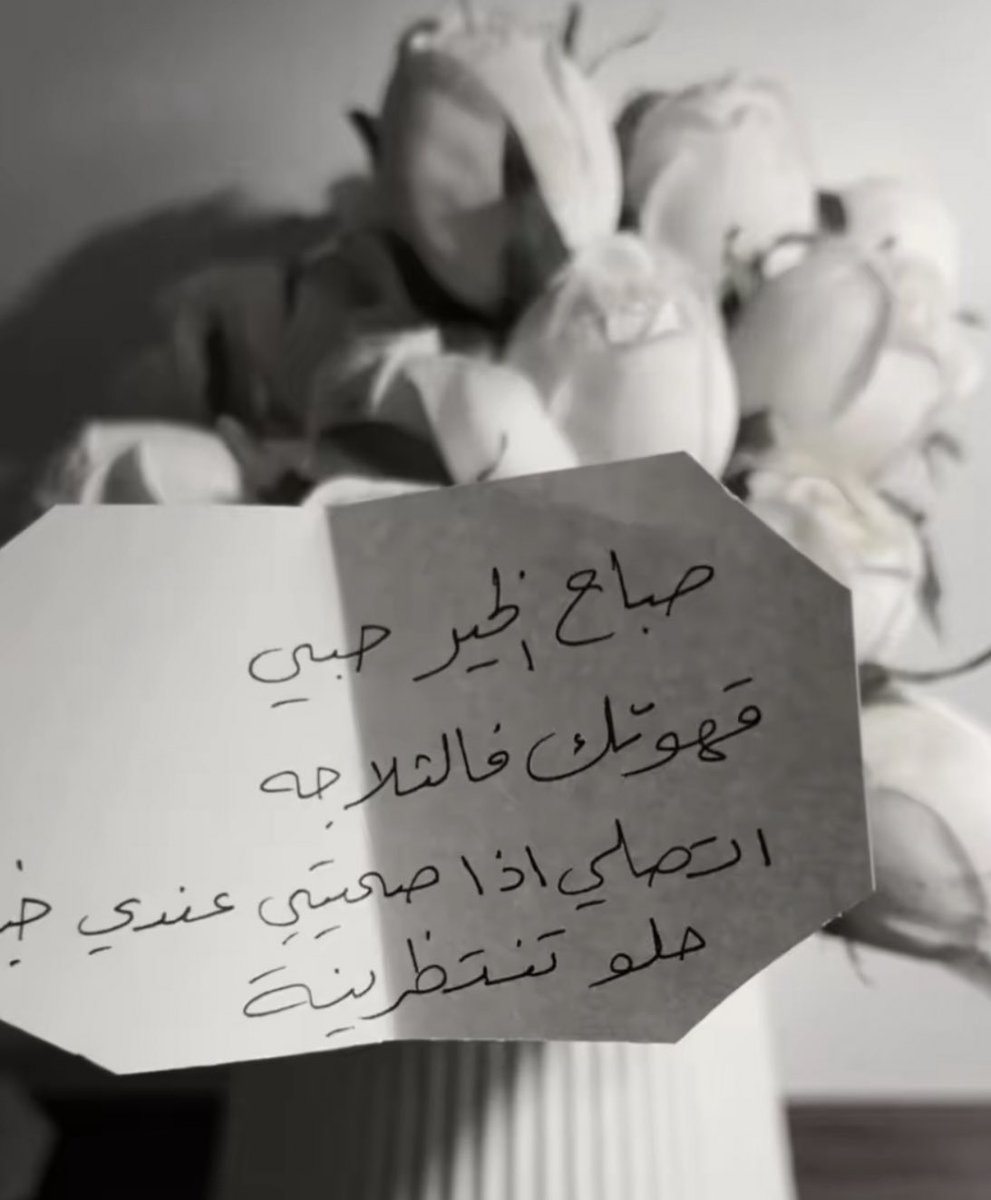 صباح الخير حبي
قهوتك فالثلاجه
اتصلي اذا صحيتي عندي
حلو تنتظرينة